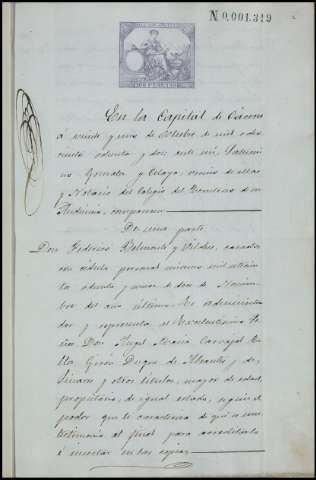 N 0.001.319
DOS PESETAS
En la Capital de Cáceres
á veinte y uno de Octubre de mil ocho
cientos ochenta y dos, ante mí,
Gonzalez y Celaya, vecino de ella
y Notario del Colegio del territorio de su
Audiencia, comparecen
De una parte
Don Federico Belmonte y Vilches, casado
con cédula personal número mil
ochenta y nueve de doce de Noviem
bre del año último. Es administra
dor y representa al Excelentísimo Se
ñor Don Angel María Carvajal
Girón Duque de Abrantes y de
Linares y otros títulos, mayor de edad,
propietario, de igual estado, según el
poder que le caracteriza de que se une
testimonio al final para acreditarlo
é insertar en las copias